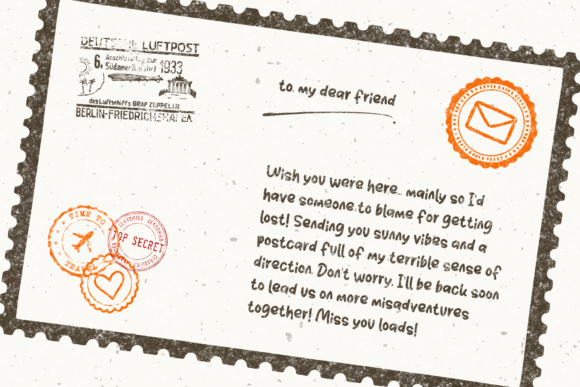 DEUTSCHE LUFTPOST
6. Anschlussflug zur
Südamerikafahrt 1933
des Luftschiffs GRAF ZEPPELIN
BERLIN-FRIEDRICHSHAFEN
to my dear friend
Wish you were here... mainly so I'd
have someone to blame for getting
lost! Sending you sunny vibes and a
postcard full of my terrible sense of
direction. Don't worry, I'll be back soon
to lead us on more misadventures
together! Miss you loads!
TIME TO
TRAVEL
TOP SECRET